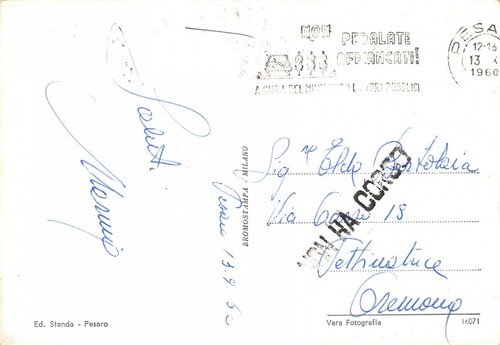 NON PEDALATE
AFFIANCATI!
A CURA DEL MINISTERO LAVORI PUBBLICI
PESA
12-16
13 X
1960
Saluti
Pesaro 13.9.60
BROMOSTAMPA - MILANO
Sig.re Elda
Via 18
NON HA CORSO
Pettinatrice
Cremona
Ed. Standa - Pesaro
Vera Fotografia
16071